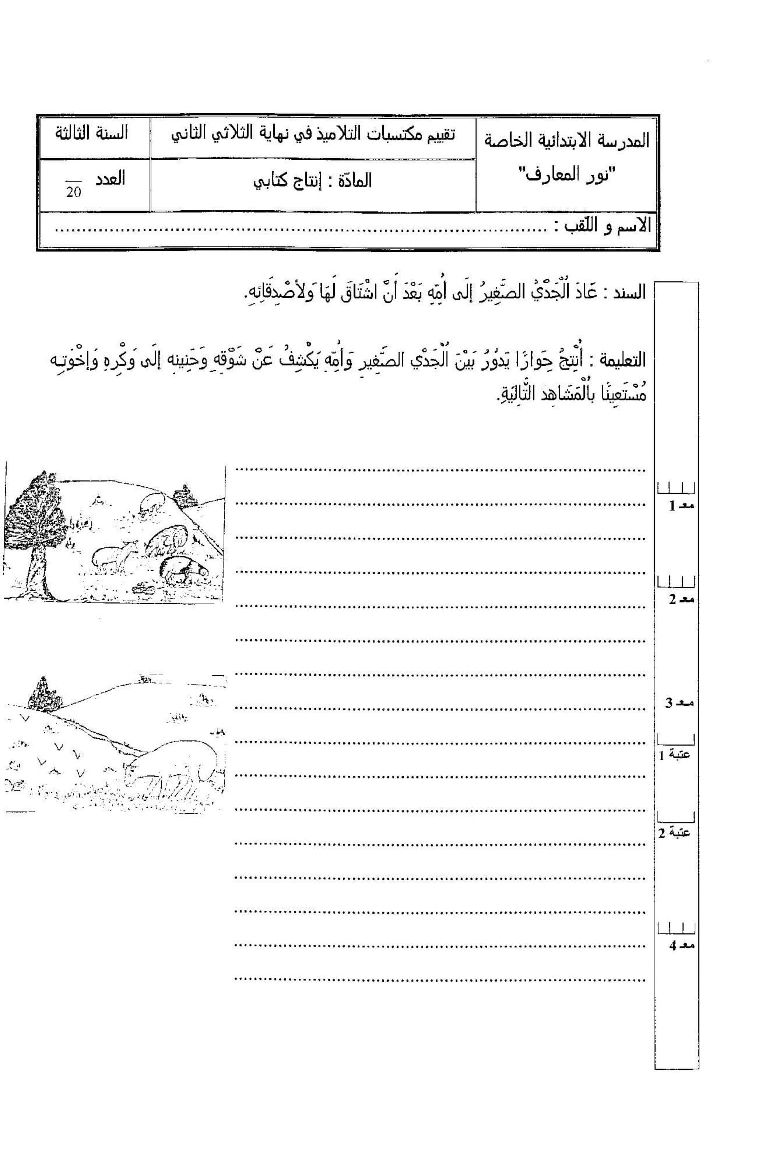 المدرسة الابتدائية الخاصة
"نور المعارف"
تقييم مكتسبات التلاميذ في نهاية الثلاثي الثاني
المادّة : إنتاج كتابي
السنة الثالثة
العدد __/20
الاسم و اللّقب : ............................................................
السند : عَادَ الْجَدْيُ الصَّغِيرُ إِلَى أُمِّهِ بَعْدَ أَنَّ اشْتَاقَ لَهَا وَلأَصْدِقَائِهِ.
التعليمة : أُنْتِجُ حِوَارًا يَدُورُ بَيْنَ الْجَدْيِ الصَّغِيرِ وَأُمِّهِ يَكْشِفُ عَنْ شَوْقِهِ وَحَنِينِهِ إِلَى وَكْرِهِ وَإِخْوَتِهِ
مُسْتَعِينًا بِالْمَشَاهِدِ التَّالِيَةِ.
معـ 1
معـ 2
معـ 3
عتبة 1
عتبة 2
معـ 4